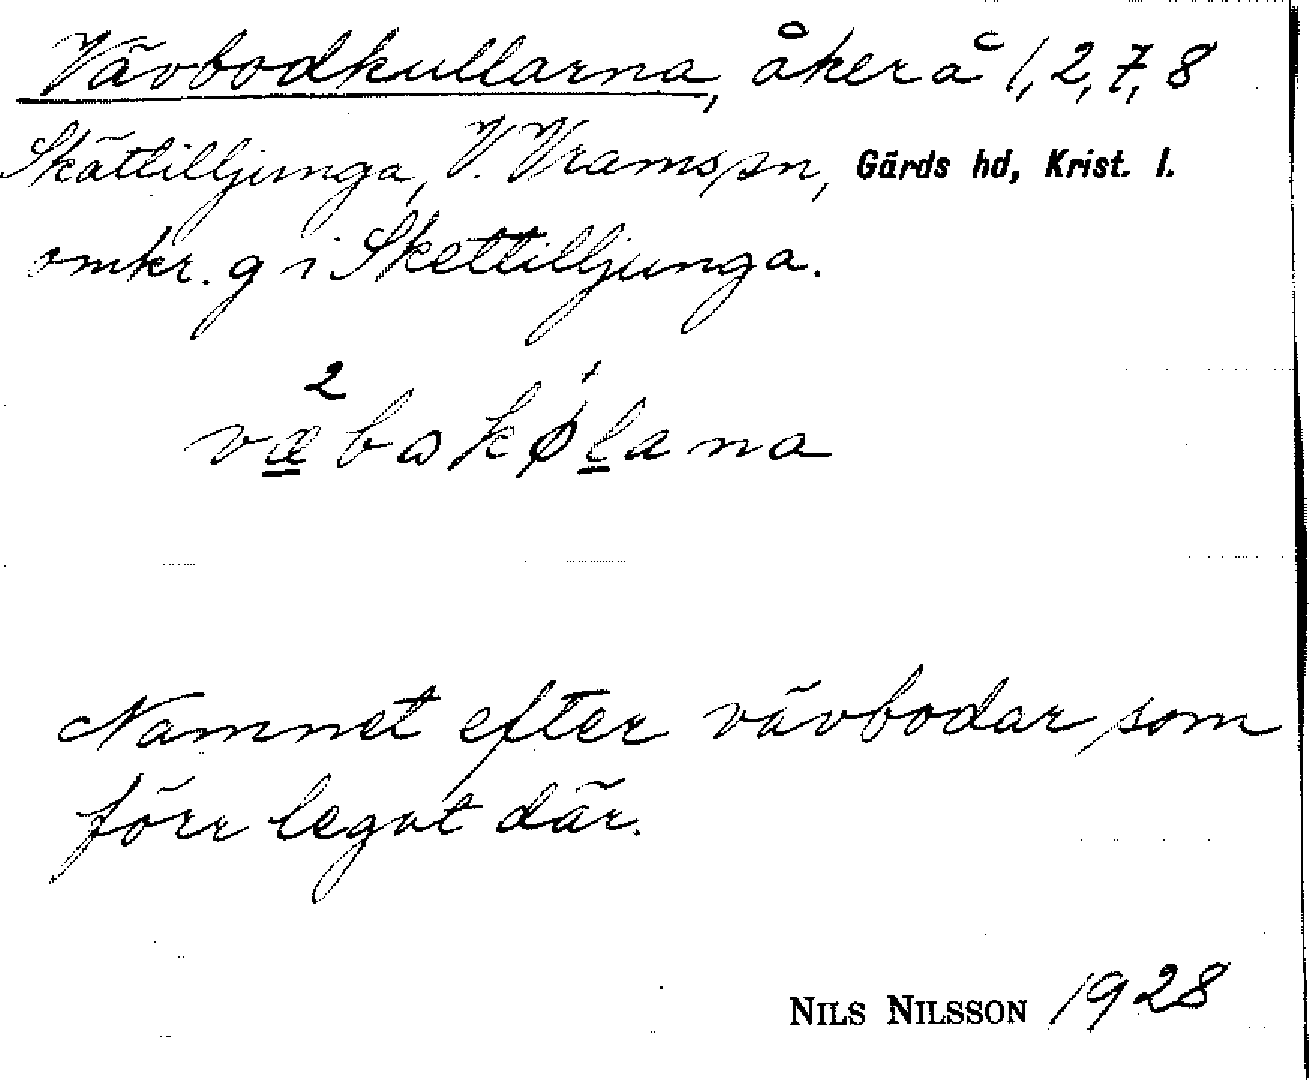 Vävbodkullarna, åker å 1, 2, 7, 8
Skättilljunga, V. Vrams sn, Gärds hd, Krist. l.
omkr. g i Skettilljunga.
2
væbaskølana
Namnet efter vävbodar som
förr legat där.
NILS NILSSON 1928